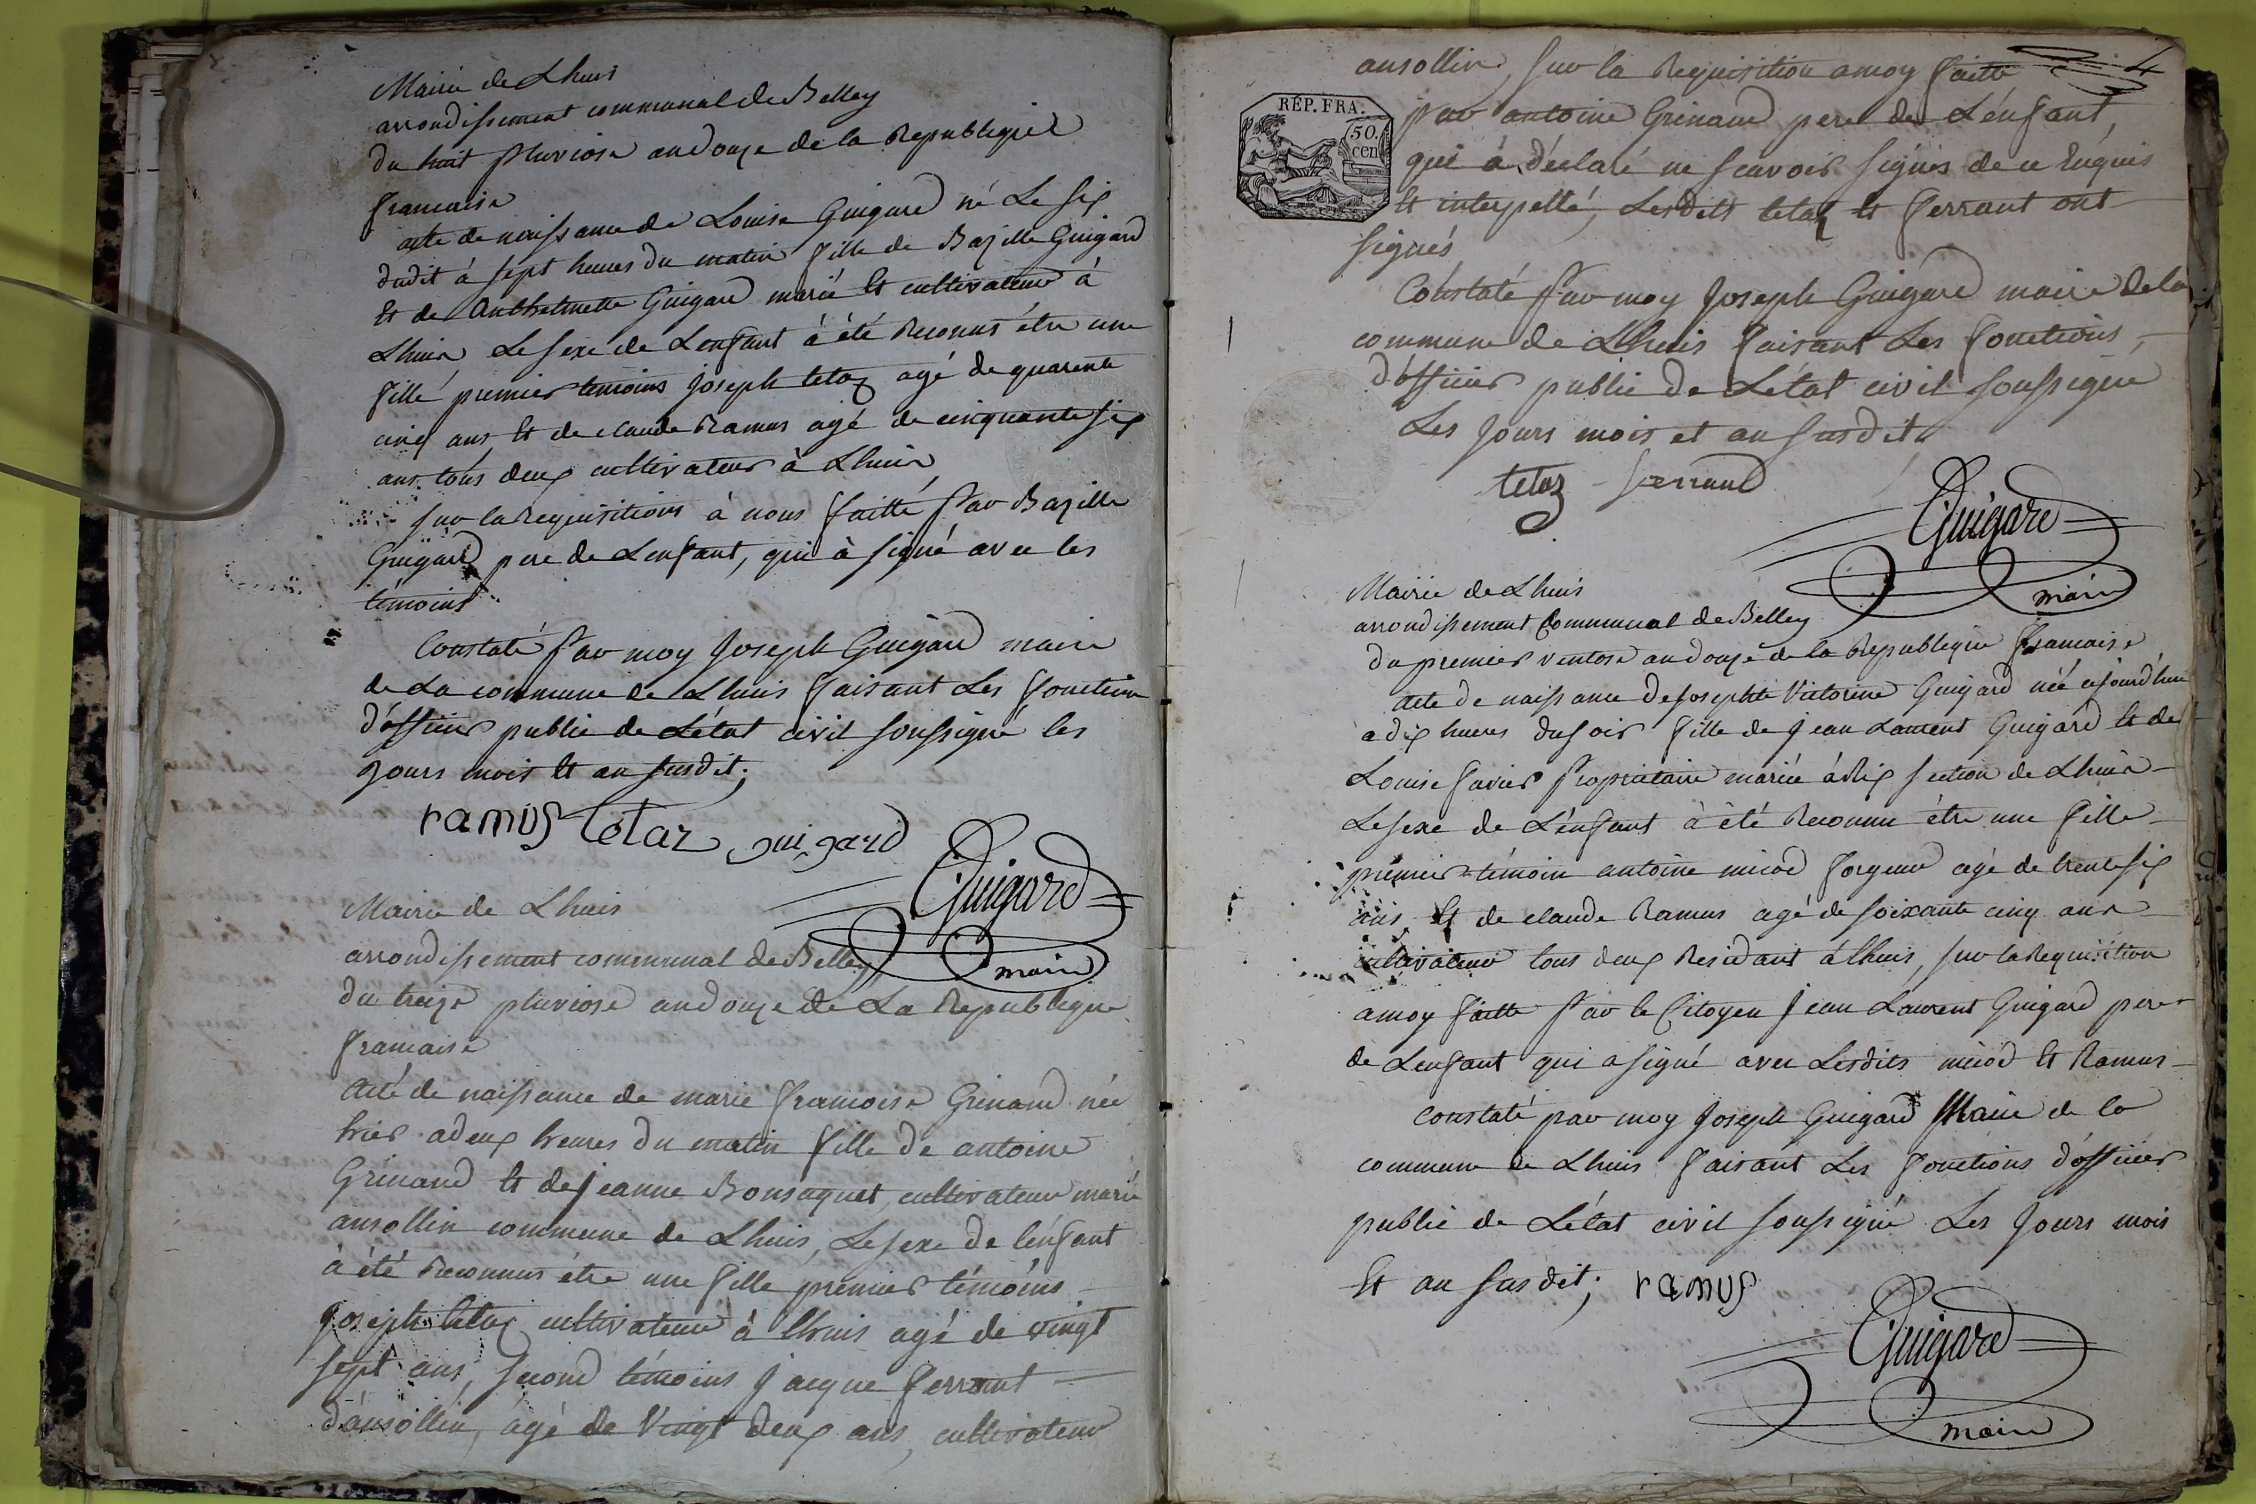 Mairie de Lhuis
arrondissement communal de Belley
du huit Pluviose an Douze de la Republique
francaise
acte de naissance de Louise Guigard né Le six
dudit à sept heures du matin fille de Bazille Guigard
Et de Anthelmette Guigard marié Et cultivateur à
Lhuis Le sexe de Lenfant à été Reconnus être une
fille premier temoins joseph tetaz agé de quarente
cinq ans Et de claude Ramus agé de cinquante six
ans tous deux cultivateur à Lhuis
sur la Requisitions à nous faitte Par Bazille
Guigard pere de Lenfant, qui à signé avec les
témoins
Constaté Par moy Joseph Guigard maire
de La commune de Lhuis faisant Les fonction
d'officier public de L'état civil soussigné les
jours mois Et an susdit;
ramus tétaz guigard
Guigard
maire
Mairie de Lhuis
arrondissement communal de Belley
du treize pluviose an Douze de La Republique
francaise
Acte de naissance de marie francoise Grinand née
hier a deux heures du matin fille de antoine
Grinand Et de jeanne Bonsaquet cultivateur marié
ansollin commune de Lhuis, Le sexe de lénfant
à été Reconnus être une fille premier témoins
joseph tetaz cultivateur à Lhuis agé de vingt
sept ans, second témoins jacque ferrant
d'ansollin, agé de Vingt deux ans, cultivateur
4
ansollin, sur la Requisition a moy faitte
RÉP. FRA.
50.
cen
par antoine Grinand pere de L'énfant,
qui à déclaré ne scavoir signés de ce Enquis
Et interpellé, Lesdits tetaz Et ferrant ont
signés
Constaté Par moy Joseph Guigard maire de la
commune de Lhuis faisant Les fonctions
d'officier public de L'état civil soussigné
Les jours mois et an susdit
tetaz ferrand
Guigard
maire
Mairie de Lhuis
arrondissement Communal de Belley
du premier ventose an douze de la Republique francaise
Acte de naissance de Josephte Victorine Guigard née cejourd'hui
a dix heures du soir fille de jean Laurent Guigard Et de
Louise favier Propriétaire mariée à Rix section de Lhuis
Le sexe de L'énfant à été Reconnu être une fille
prémier témoin antoine micod forgeur agé de trente six
ans Et de claude Ramus agé de soixante cinq ans
cultivateur tous deux Residant à Lhuis, sur la Requisition
a moy faitte Par le Citoyen jean Laurent Guigard pere
de Lenfant qui a signé avec Lesdits micod Et Ramus
constaté par moy Joseph Guigard Maire de la
commune de Lhuis faisant Les fonctions d'officier
public de L'état civil soussigné Les jours mois
Et an susdit; ramus
Guigard
maire